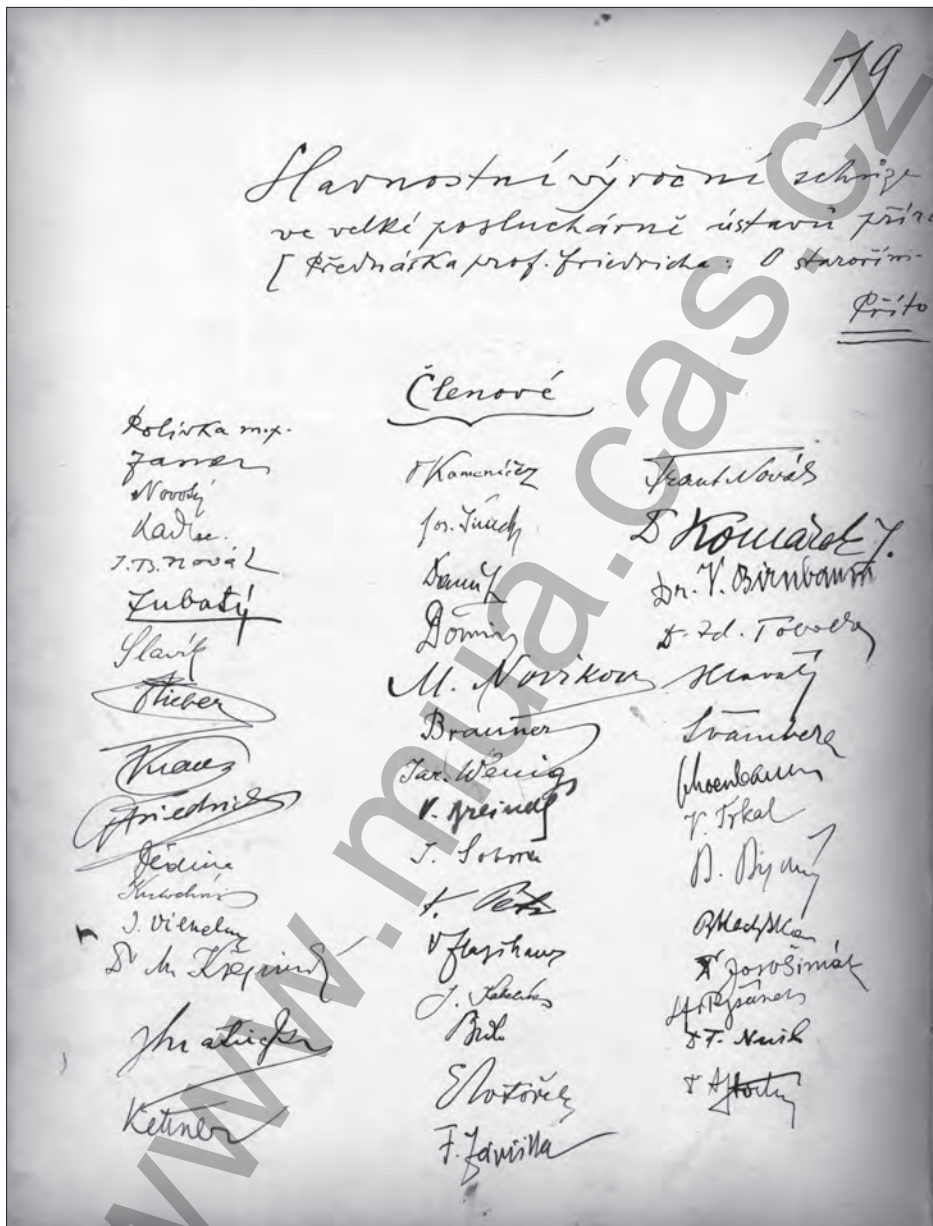 19
Slavnostní výroční schůze
ve velké posluchárně ústavů příro
[Přednáška prof. Friedricha: O starořím-
Příto
Členové
Polívka m.p.
Janko
Novotný
Kadlec.
J.B. Novák
Zubatý
Slavík
Stieber
Kraus
Friedrich
J. Vilhelm
Dr M. Křepinský
J Matiegka
Kettner
Kameníček
Jos. Šusta
Daněk
Domin
M. Novikov
Brauner
Jar. Wenig
V. Breindl
J. Sobota
K. Petr
V Flajšhans
Bidlo
E Votoček
F. Záviška
Frant. Novák
Dr Komárek J.
Dr. V. Birnbaum
Dr Zd. Tobolka
Hlavatý
Švambera
Schoenbaum
V. Trkal
B. Bydžovský
B Hledíková
Dr Jos V Šimák
A. Ryšánek
Dr F. Nušl
www.mua.cas.cz